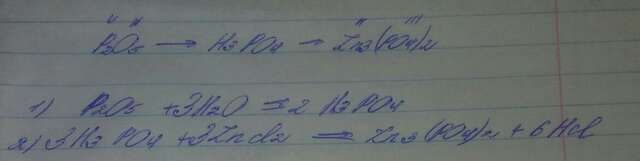 II II II III
P2O5 → H3PO4 → Zn3(PO4)2
1) P2O5 + 3H2O = 2 H3PO4
2) 3H3PO4 + 3ZnCl2 = Zn3(PO4)2 + 6HCl